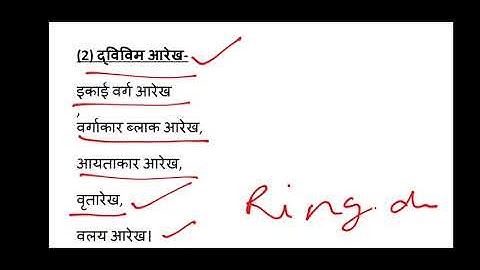 (2) द्विविम आरेख-
इकाई वर्ग आरेख
,
वर्गाकार ब्लाक आरेख,
आयताकार आरेख,
वृतारेख,
वलय आरेख।
Ring. d